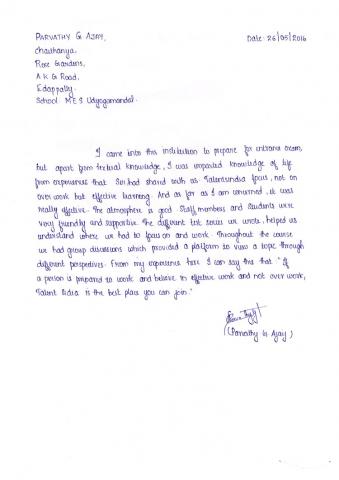 PARVATHY G AJAY,
Date: 26/05/2016
Chaithanya,
Rose Gardens,
A K G Road,
Edappally.
School M E S Udyogamandal.
I came into this institution to prepare for entrance exam,
but apart from textual knowledge, I was imparted knowledge of life
from experiences that Sir had shared with us. Talentsindia focus, not on
over work but effective learning. And as far as I am concerned, it was
really effective. The atmosphere is good. Staff members and students were
very friendly and supportive. The different test series we wrote, helped us
understand where we had to focus on and work. Throughout the course
we had group discussions which provided a platform to view a topic through
different perspectives. From my experience here I can say this that "If
a person is prepared to work and believe in effective work and not over work,
Talent India is the best place you can join."
(Parvathy G Ajay)